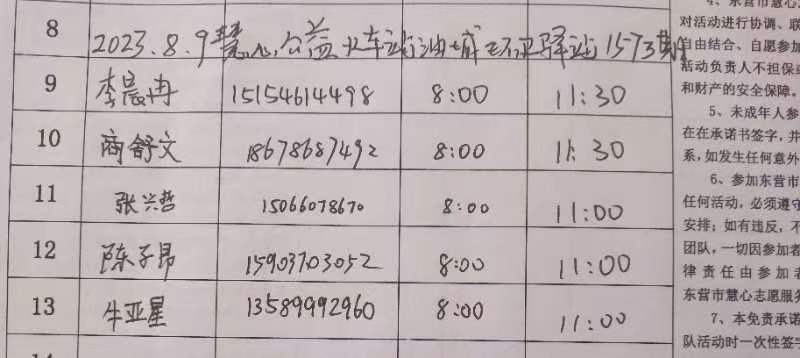 8 2023.8.9慧心公益火车站油城环卫驿站1573期
9 李晨冉 15154614498 8:00 11:30
10 商舒文 18678687492 8:00 11:30
11 张兴哲 15066078670 8:00 11:00
12 陈子昂 15903703052 8:00 11:00
13 牛亚星 13589992960 8:00 11:00
4、东营市慧心
对活动进行协调、联
自由结合、自愿参加
活动负责人不担保
和财产的安全保障。
5、未成年人参
在在承诺书签字，并
系，如发生任何意外
6、参加东营市
任何活动，必须遵守
安排；如有违反，不
团队，一切因参加者
律责任由参加者
东营市慧心志愿服务
7、本免责承诺
队活动时一次性签字